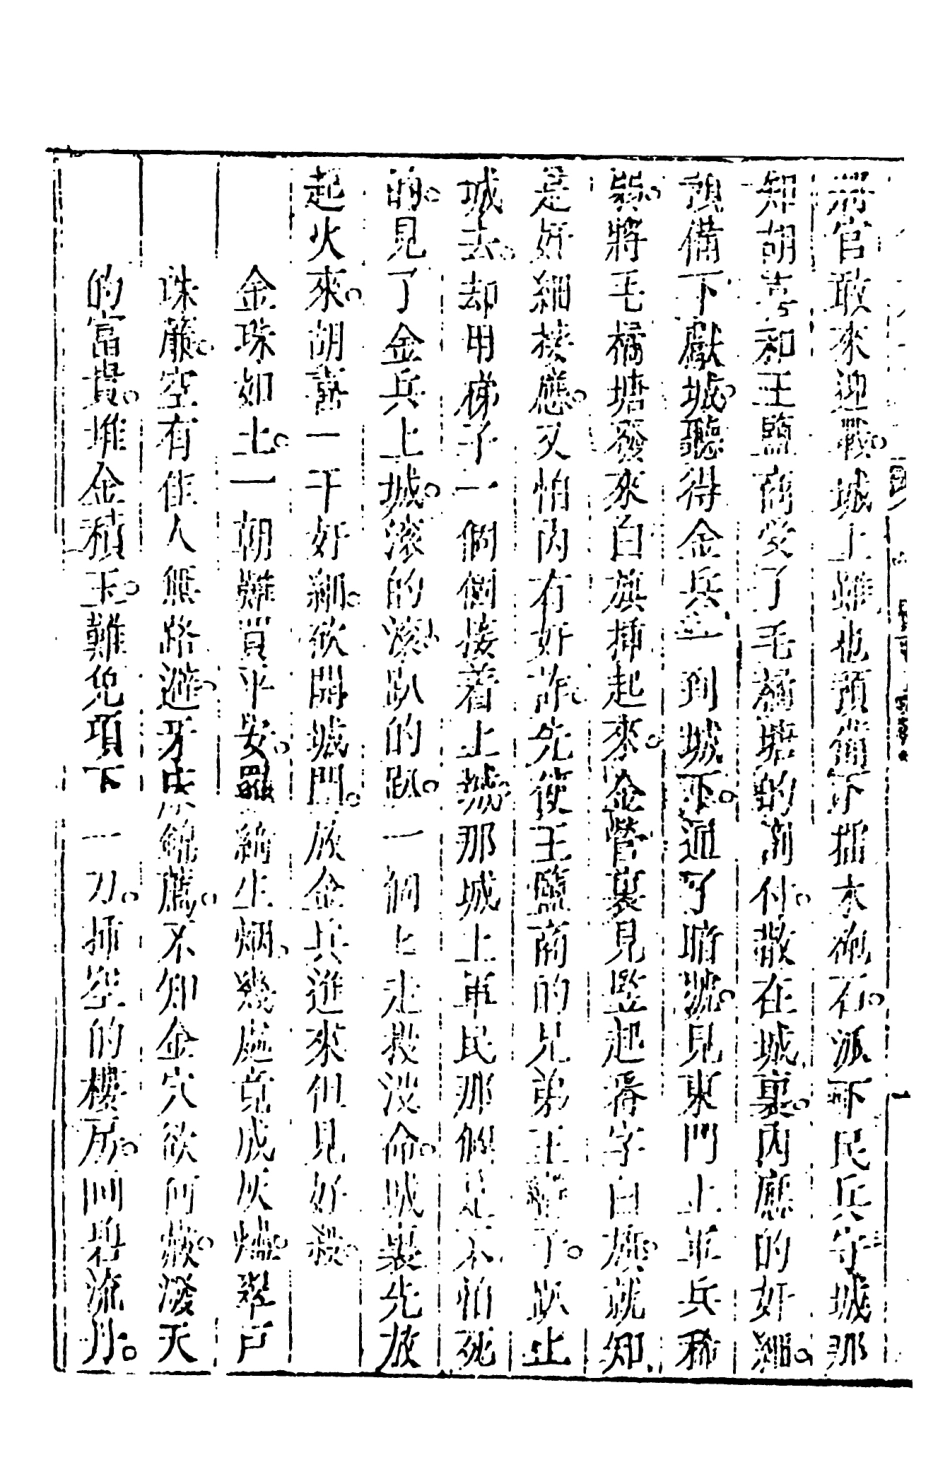 將官敢來迎戰。城上雖也預備下擂木砲石。派下民兵守城那
知胡喜和王鹽商受了毛橘塘的囑付。散在城裏。內應的奸細。
預備下獻城。聽得金兵一到城下。通了暗號。見東門上軍兵稀
弱。將毛橘塘發來白旗揷起來。金營裏見竪起畨字白旗。就知
是奸細接應。又怕內有奸詐。先使王鹽商的兄弟王 了。跳上
城去。却用梯子一個個接着上城。那城上軍民那個是不怕死
的。見了金兵上城。滚的滚。趴的趴。一個上走救没命。城裏先放
起火來。胡喜一干奸細。欲開城門。放金兵進來但見好殺。
金珠如土。一朝難買平安。羅綺生烟。幾處竟成灰燼。翠戶
珠簾。空有佳人無路避。牙床錦薦。不知金穴欲何藏。潑天
的富貴。堆金積玉。難免項下一刀。揷空的樓房。回碧流丹。